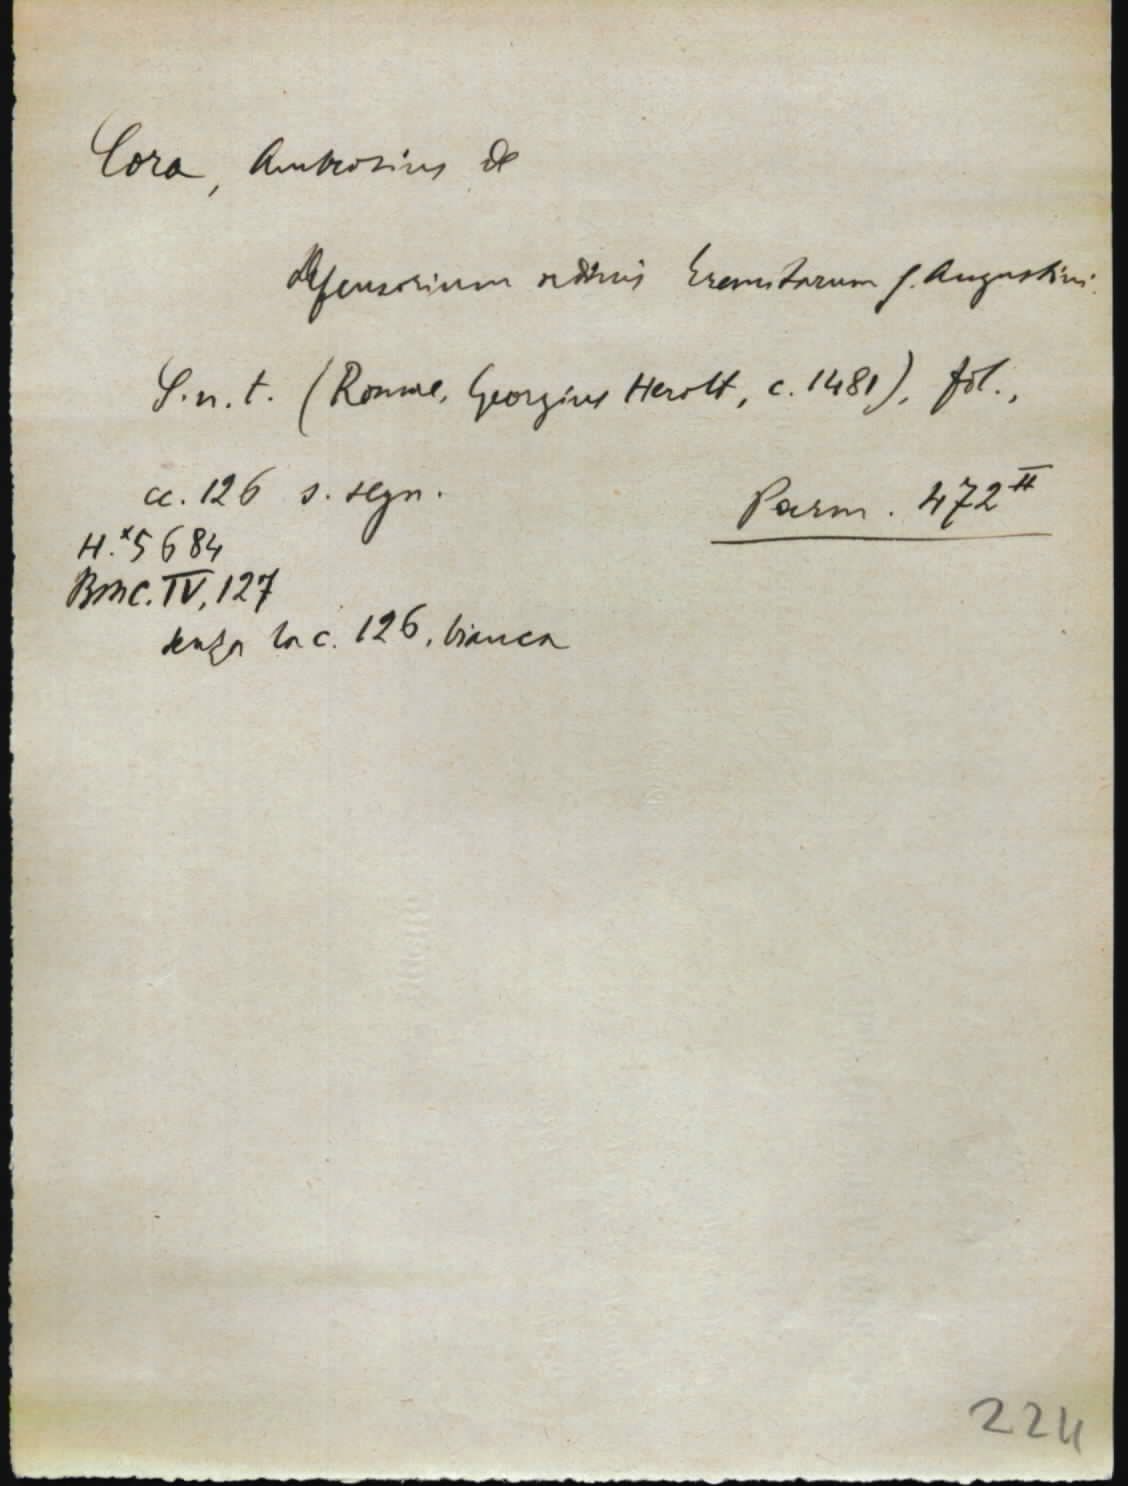 Cora, Ambrosius de
Defensorium ordinis Eremitarum S. Augustini.
S. n. t. (Romae, Georgius Herolt, c. 1481), fol.,
cc. 126 s. segn.
Parm. 472 II
H.*5684
BMC. IV, 127
senza la c. 126, bianca
224